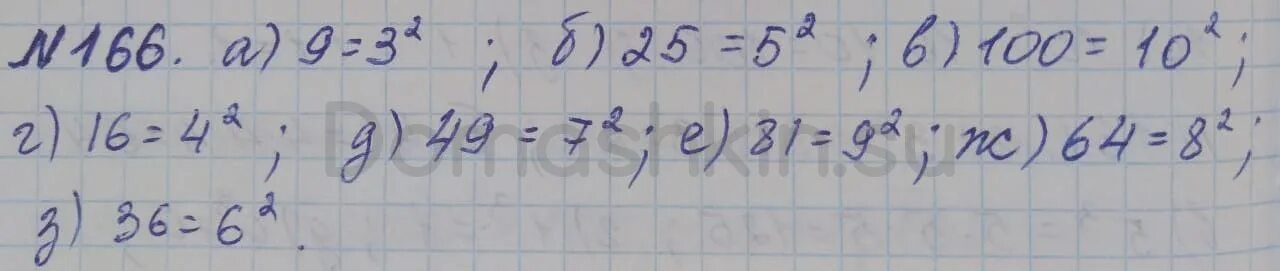 №166. а) 9 = 3² ; б) 25 = 5² ; в) 100 = 10² ;
г) 16 = 4² ; д) 49 = 7² ; е) 81 = 9² ; ж) 64 = 8² ;
Domashkin.su
з) 36 = 6² .